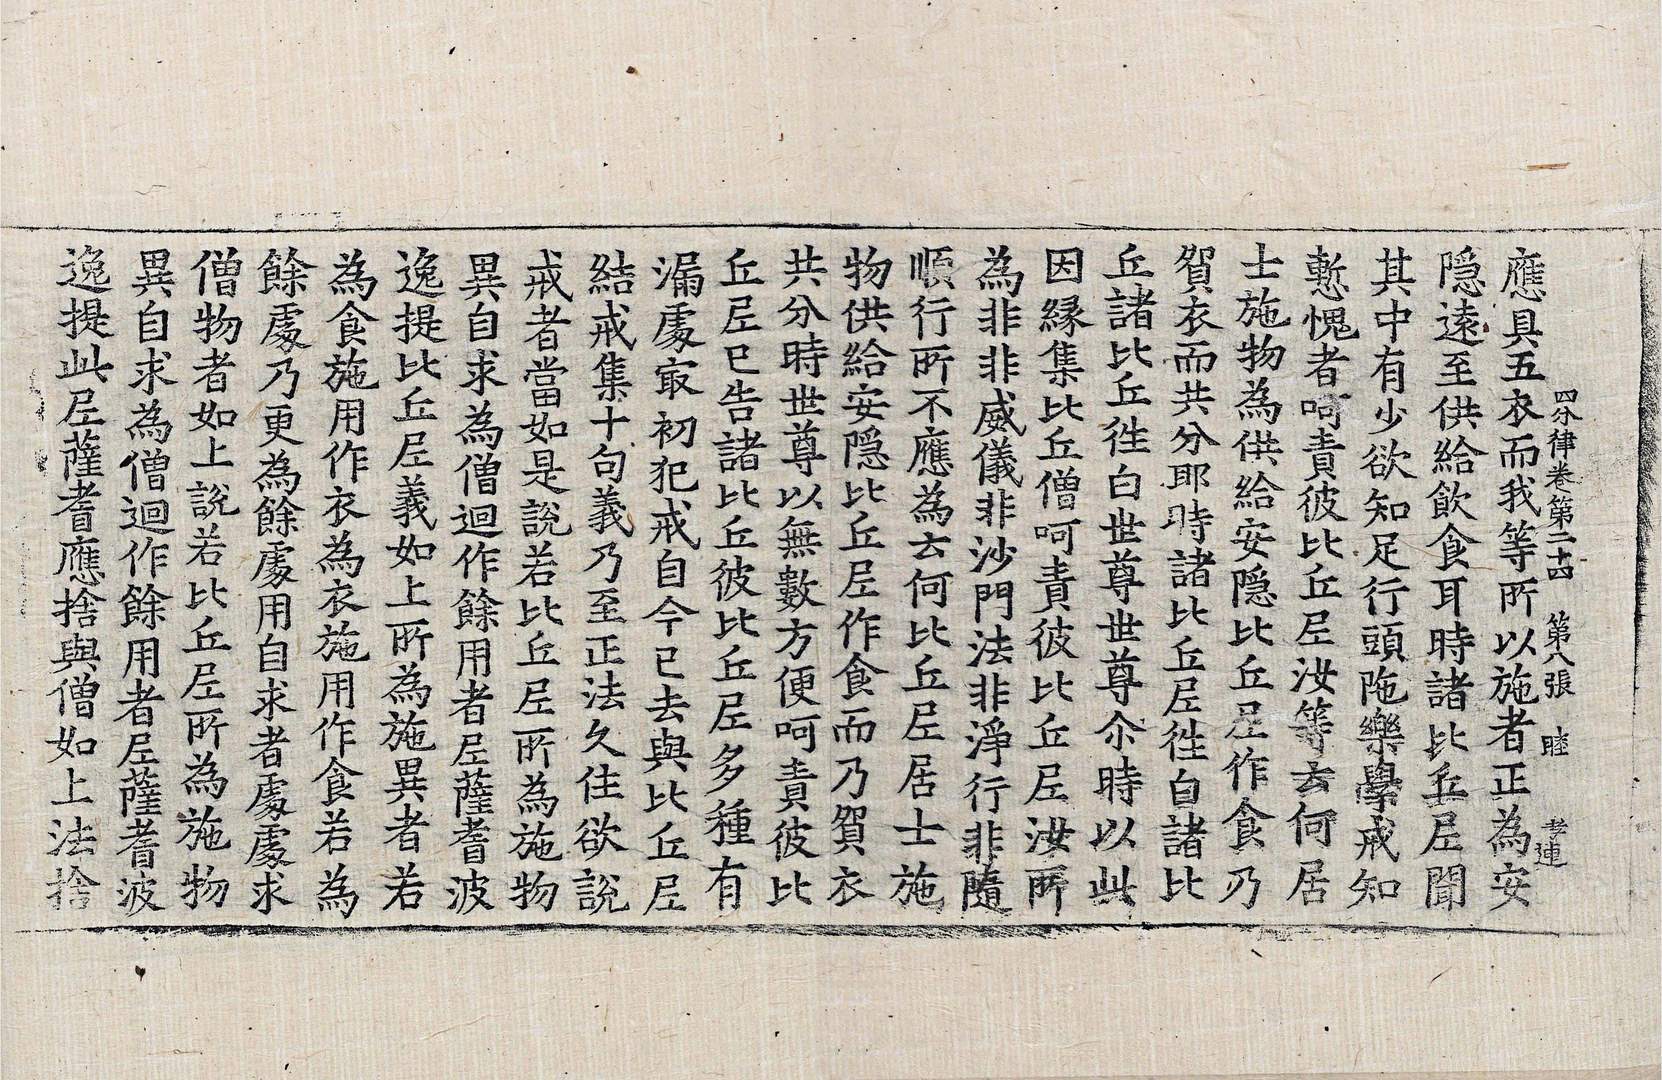 應具五衣而我等所以施者正為安
四分律卷第二十四 第八張 睦
孝連
隠遠至供給飲食耳時諸比丘𡰱聞
其中有少欲知足行頭陁樂學戒知
慙愧者呵責彼比丘𡰱汝等云何居
士施物為供給安隠比丘𡰱作食乃
貿衣而共分耶時諸比丘𡰱徃白諸比
丘諸比丘徃白世尊世尊尒時以此
因縁集比丘僧呵責彼比丘𡰱汝所
為非非威儀非沙門法非淨行非隨
順行所不應為云何比丘𡰱居士施
物供給安隠比丘𡰱作食而乃貿衣
共分時世尊以無數方便呵責彼比
丘𡰱已告諸比丘彼比丘𡰱多種有
漏處㝡初犯戒自今已去與比丘𡰱
結戒集十句義乃至正法久住欲說
戒者當如是說若比丘𡰱所為施物
異自求為僧迴作餘用者𡰱薩耆波
逸提比丘𡰱義如上所為施異者若
為食施用作衣為衣施用作食若為
餘處乃更為餘處用自求者處處求
僧物者如上說若比丘𡰱所為施物
異自求為僧迴作餘用者𡰱薩耆波
逸提此𡰱薩耆應捨與僧如上法捨